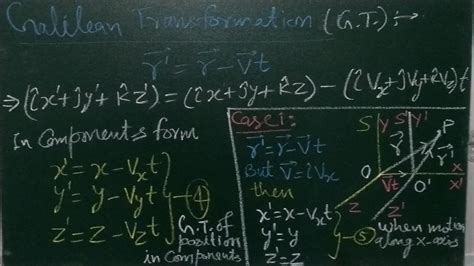 Galilean Transformation (G.T.) :→
r⃗' = r⃗ - V⃗t
⇒ (îx'+ĵy'+k̂z') = (îx+ĵy+k̂z) - (îVx+ĵVy+k̂Vz)t
In Components form
x' = x - Vxt
y' = y - Vyt
z' = z - Vzt
④
G.T. of
position
in components
Case i:
r⃗' = r⃗ - V⃗t
But V⃗ = îVx
then
x' = x - Vxt
y' = y
z' = z
⑤
when motion
along x-axis
S Y S' Y' P
r⃗ r⃗'
O V⃗t O' X X'
Z Z'